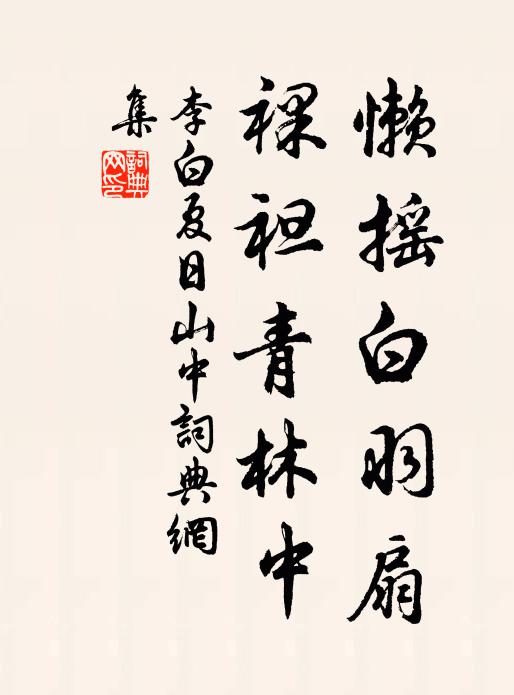 懶搖白羽扇
裸袒青林中
李白夏日山中詞典網
集
詞典網印